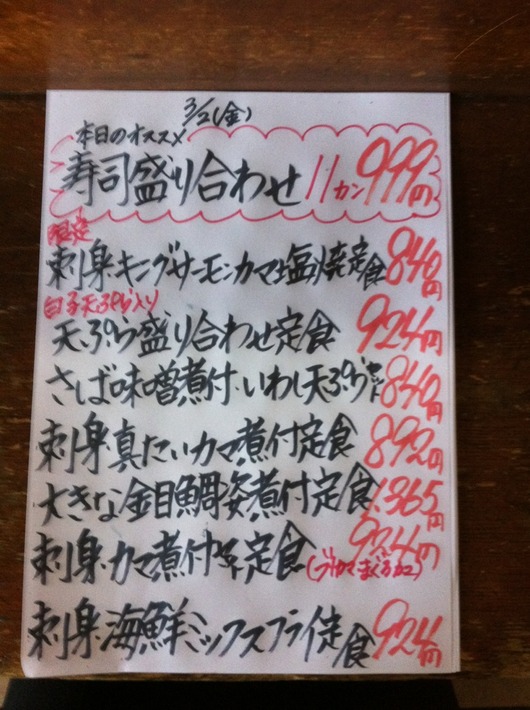 3/2(金)
本日のオススメ
寿司盛り合わせ 11カン 999円
限定
刺身・キングサーモンカマ塩焼定食 840円
白子天ぷら入り
天ぷら盛り合わせ定食 924円
さば味噌煮付・いわし天ぷらセット 840円
刺身・真たいカマ煮付定食 892円
大きな金目鯛姿煮付定食 1,365円
刺身・カマ煮付 定食 924円
刺身・海鮮ミックスフライ定食 924円